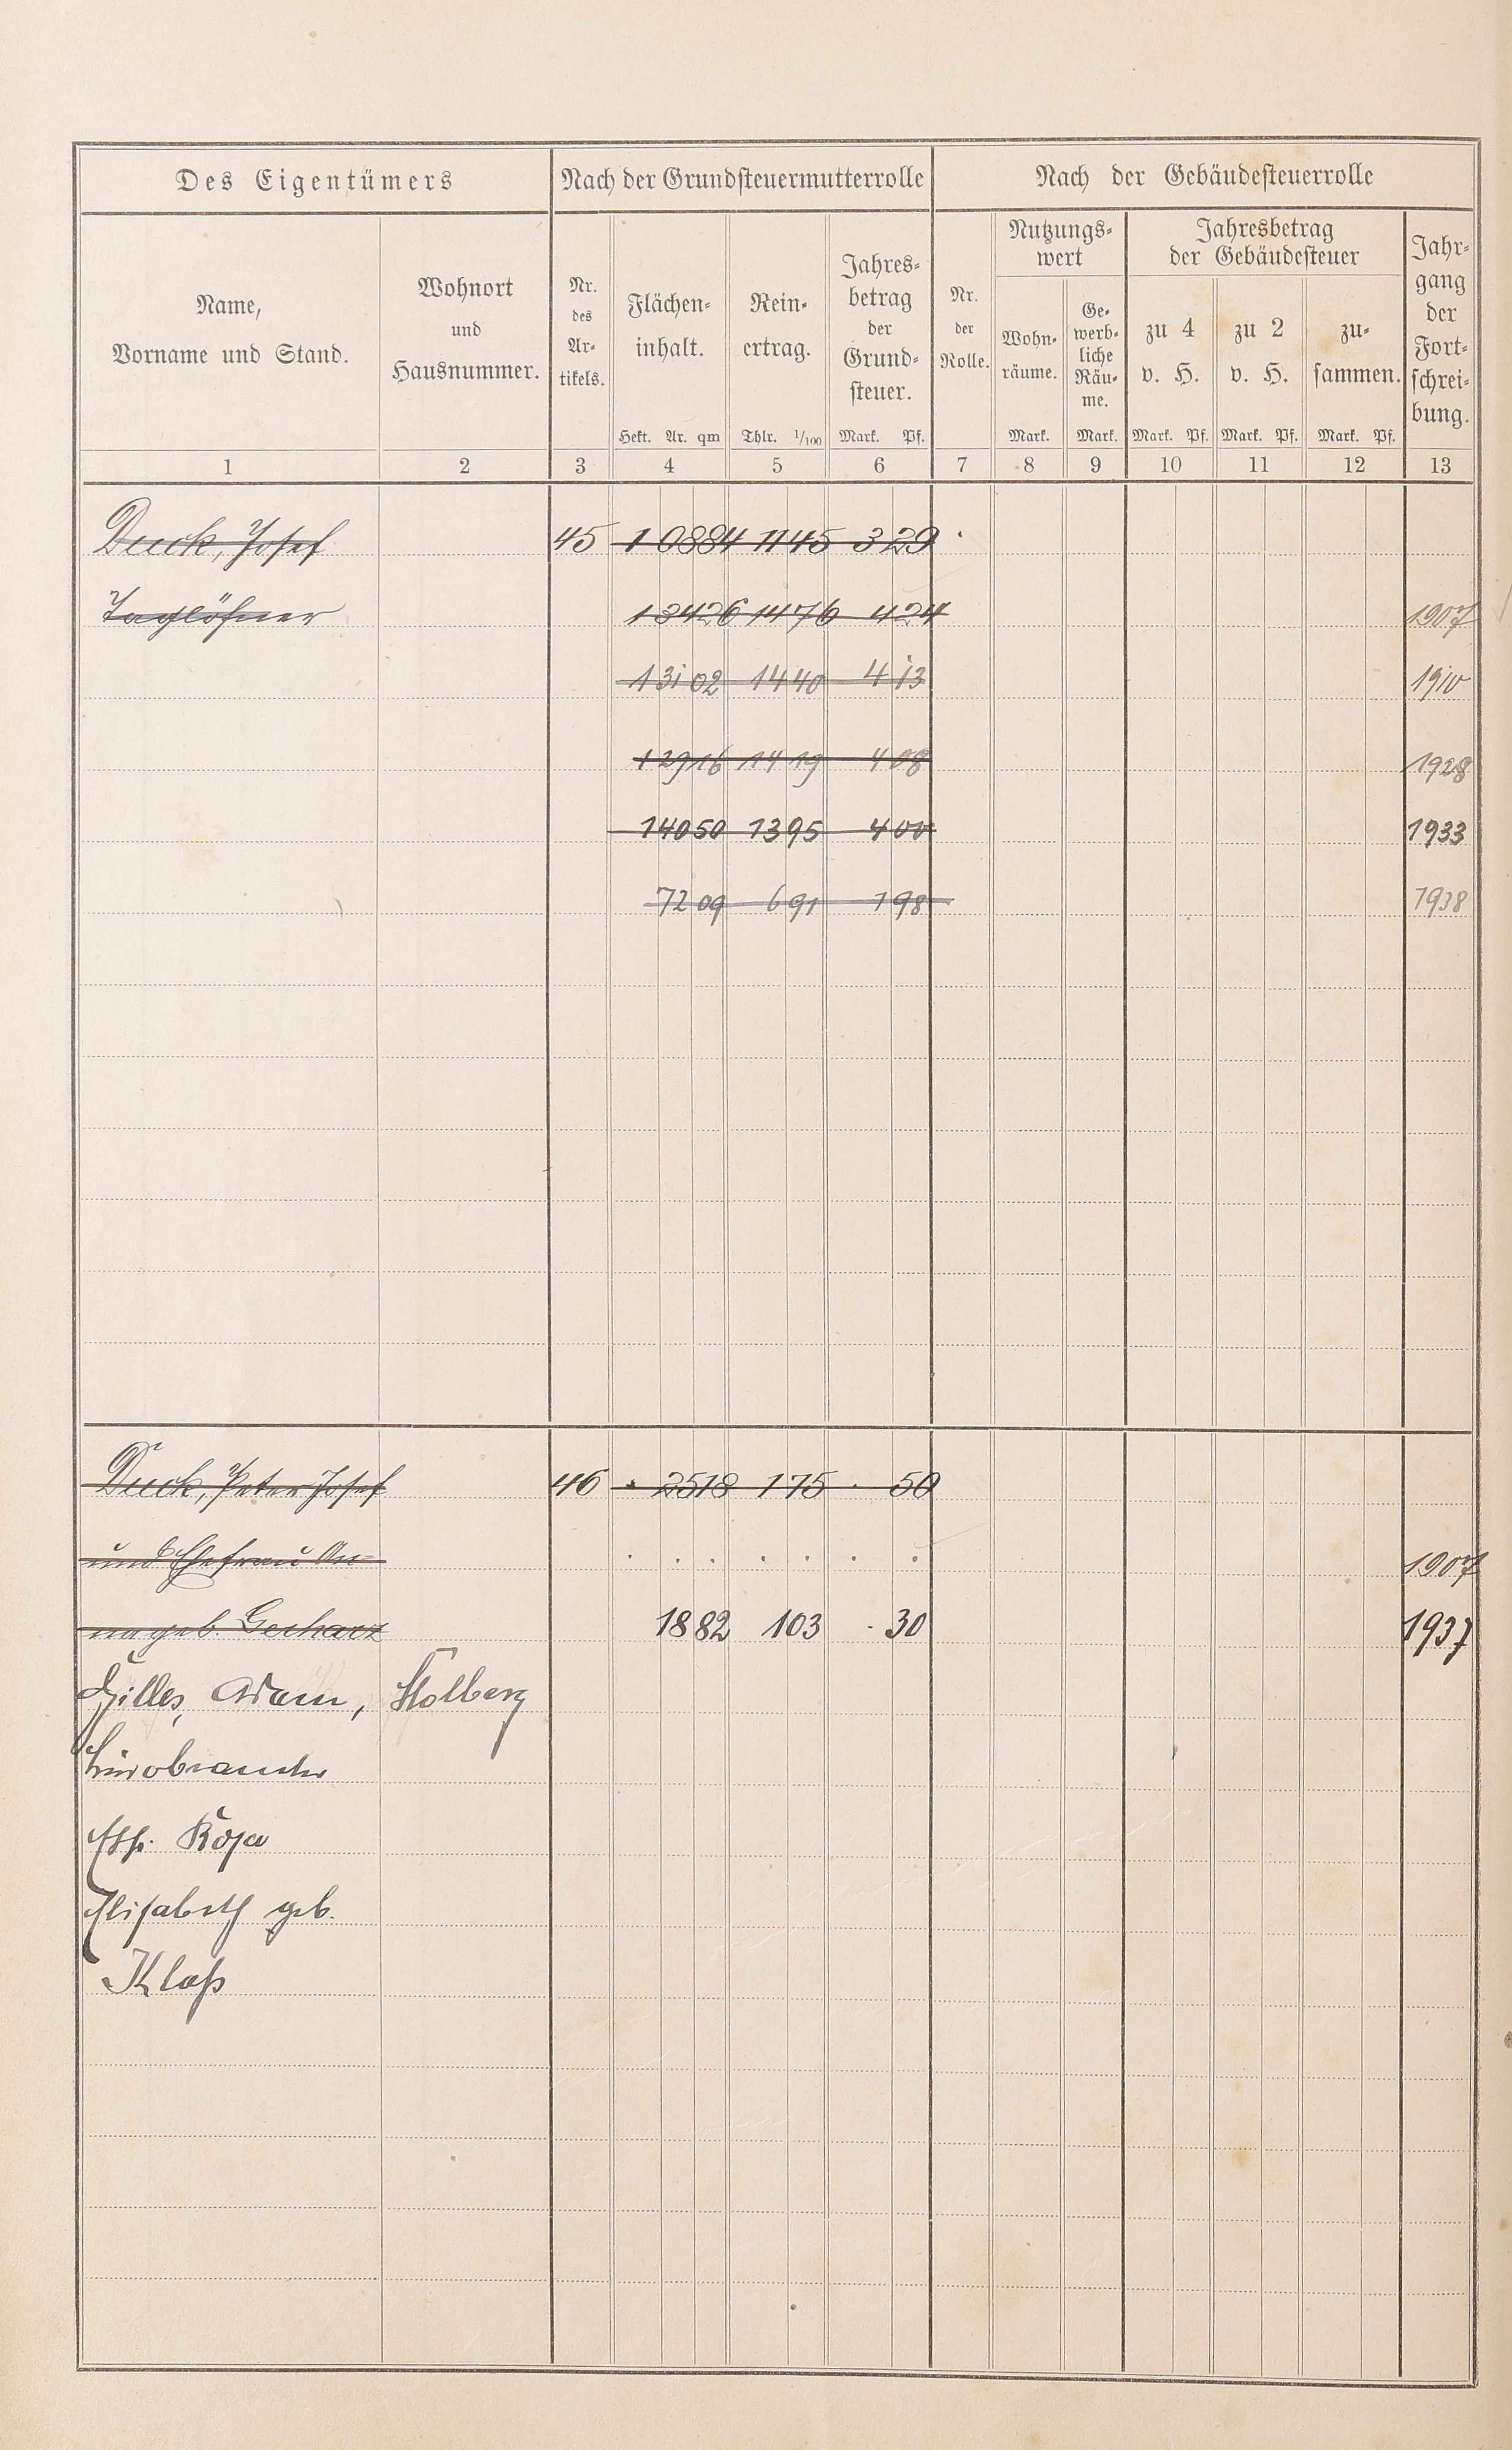 Des Eigentümers Nach der Grundsteuermutterrolle Nach der Gebäudesteuerrolle
Name,
Vorname und Stand.
Wohnort
und
Hausnummer.
Nr.
des
Ar-
tikels.
Flächen-
inhalt.
Hekt. Ar. qm
Rein-
ertrag.
Thlr. 1/100
Jahres-
betrag
der
Grund-
steuer.
Mark. Pf.
Nr.
der
Rolle.
Nutzungs-
wert
Wohn-
räume.
Mark.
Ge-
werb-
liche
Räu-
me.
Mark.
Jahresbetrag
der Gebäudesteuer
zu 4
v. H.
Mark. Pf.
zu 2
v. H.
Mark. Pf.
zu-
sammen.
Mark. Pf.
Jahr-
gang
der
Fort-
schrei-
bung.
1 2 3 4 5 6 7 8 9 10 11 12 13
Duck, Josef 45 1 08 84 11 45 3 29
Taglöhner 1 34 26 14 76 4 24 1907
1 31 02 14 40 4 13 1910
1 29 16 14 19 4 08 1928
1 40 50 13 95 4 00 1933
72 09 6 91 1 98 1938
Duck, Peter Josef 46 . 25 18 1 75 . 50
und Ehefrau An- . . . . . . . 1907
na geb. Gerharz 18 82 1 03 . 30 1937
Gilles, Adam, Stolberg
Bürobeamter
Ehfr. Rosa
Elisabeth geb.
Klaß